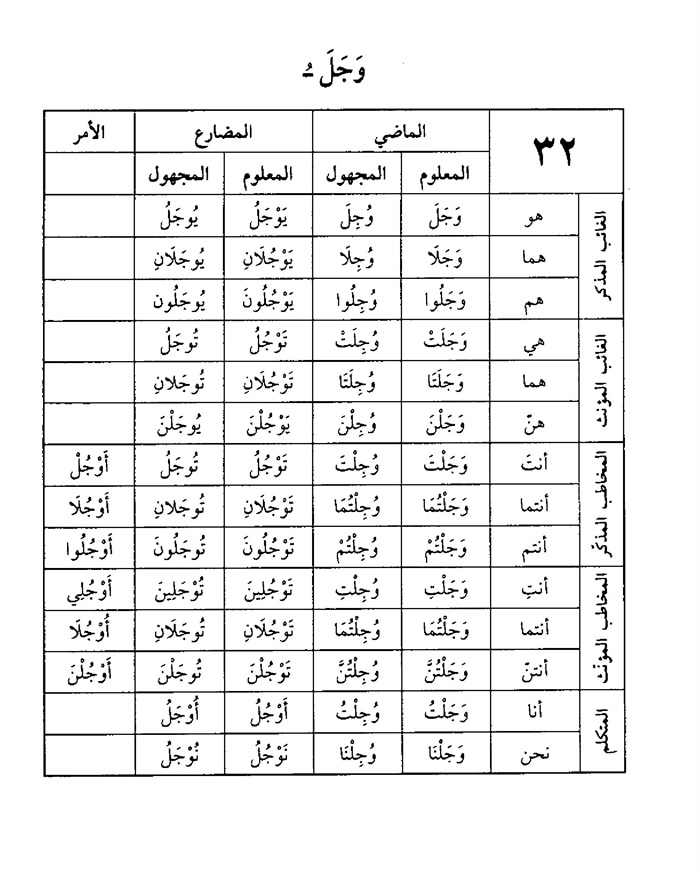 وَجَلَ ـُ
٣٢ الماضي المضارع الأمر
المعلوم المجهول المعلوم المجهول
الغائب المذكر
هو وَجَلَ وُجِلَ يَوْجُلُ يُوجَلُ
هما وَجَلَا وُجِلَا يَوْجُلَانِ يُوجَلَانِ
هم وَجَلُوا وُجِلُوا يَوْجُلُونَ يُوجَلُون
الغائب المؤنث
هي وَجَلَتْ وُجِلَتْ تَوْجُلُ تُوجَلُ
هما وَجَلَتَا وُجِلَتَا تَوْجُلَانِ تُوجَلانِ
هنّ وَجَلْنَ وُجِلْنَ يَوْجُلْنَ يُوجَلْنَ
المخاطب المذكّر
أنتَ وَجَلْتَ وُجِلْتَ تَوْجُلُ تُوجَلُ أَوْجُلْ
أنتما وَجَلْتُمَا وُجِلْتُمَا تَوْجُلَانِ تُوجَلانِ أَوْجُلَا
أنتم وَجَلْتُمْ وُجِلْتُمْ تَوْجُلُونَ تُوجَلُونَ أَوْجُلُوا
المخاطب المؤنّث
أنتِ وَجَلْتِ وُجِلْتِ تَوْجُلِينَ تُوْجَلِينَ أَوْجُلِي
أنتما وَجَلْتُمَا وُجِلْتُمَا تَوْجُلَانِ تُوجَلَانِ أُوْجُلَا
أنتنّ وَجَلْتُنَّ وُجِلْتُنَّ تَوْجُلْنَ تُوجَلْنَ أَوْجُلْنَ
المتكلم
أنا وَجَلْتُ وُجِلْتُ أَوْجُلُ أُوْجَلُ
نحن وَجَلْنَا وُجِلْنَا نَوْجُلُ نُوْجَلُ